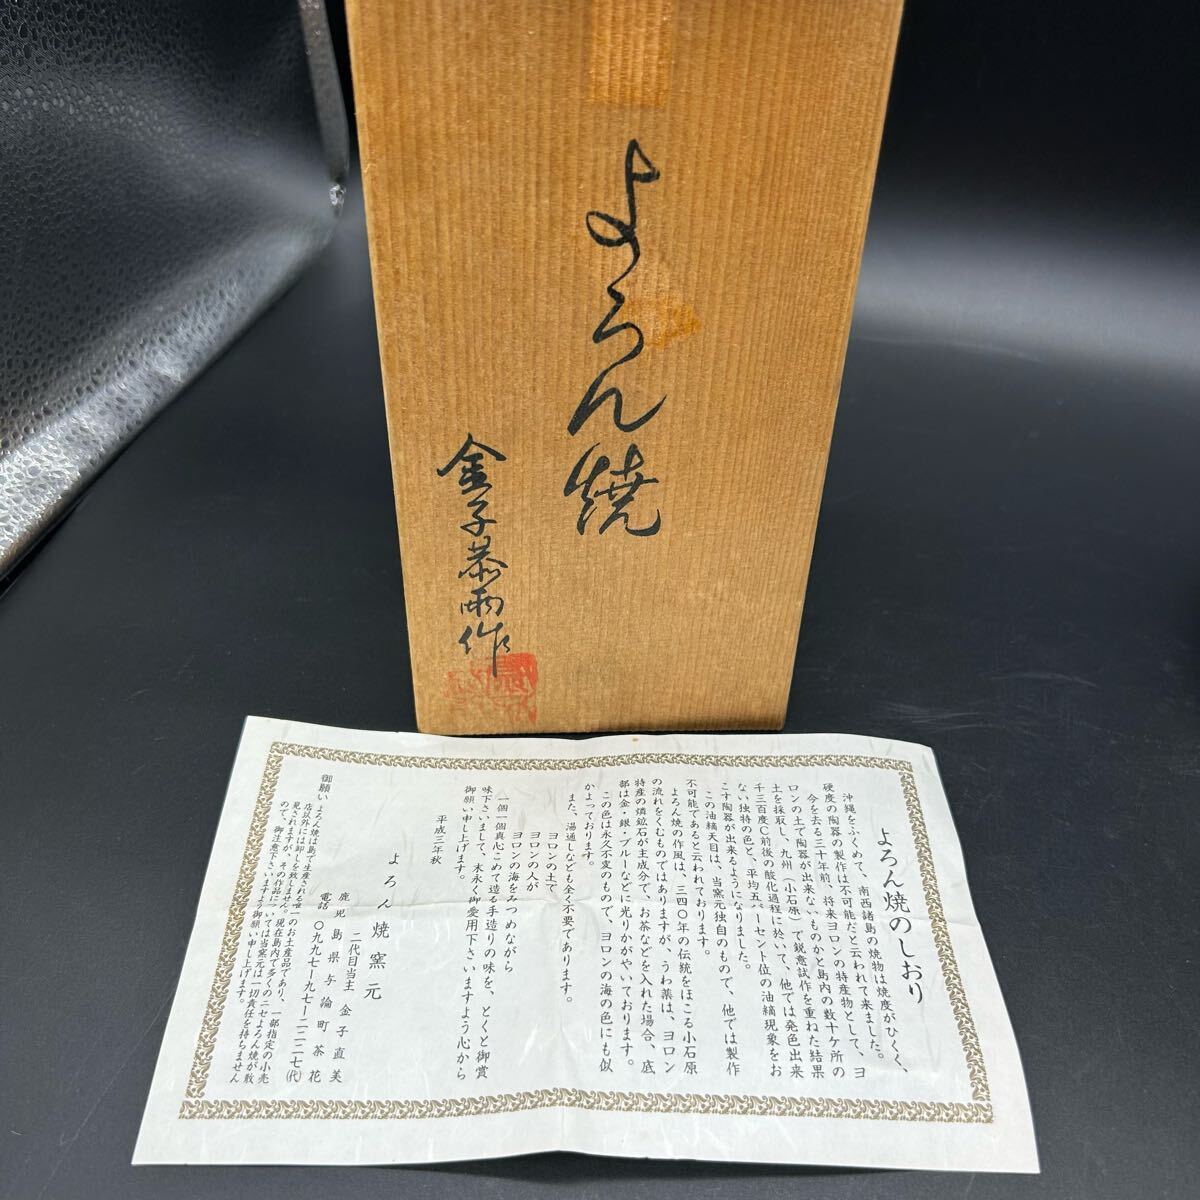 よろん焼
金子恭雨作
よろん焼のしおり
沖縄をふくめて、南西諸島の焼物は焼度がひくく、
硬度の陶器の製作は不可能だと云われて来ました。
今を去る三十年前、将来ヨロンの特産物として、ヨ
ロンの土で陶器が出来ないものかと島内の数十ケ所の
土を採取し、九州（小石原）で鋭意試作を重ねた結果
千三百度C前後の酸化過程に於いて、他では発色出来
ない独特の色と、平均五パーセント位の油縞現象をお
こす陶器が出来るようになりました。
この油縞天目は、当窯元独自のもので、他では製作
不可能であると云われております。
よろん焼の作風は、三四〇年の伝統をほこる小石原
の流れをくむものではありますが、うわ薬は、ヨロン
特産の燐鉱石が主成分で、お茶などを入れた場合、底
部は金・銀・ブルーなどに光りかがやいております。
この色は永久不変のもので、ヨロンの海の色にも似
かよっております。
また、湯通しなども全く不要であります。
ヨロンの土で
ヨロンの人が
ヨロンの海をみつめながら
一個一個真心こめて造る手造りの味を、とくと御賞
味下さいまして、末永く御愛用下さいますよう心から
御願い申し上げます。
平成三年秋
よろん焼窯元
二代目当主　金子直美
鹿児島県与論町茶花
電話〇九九七―九七―二二二七㈹
御願い よろん焼は島で生産される唯一のお土産品であり、一部指定の小売
店以外には卸しを致しません。現在島内で多くのニセよろん焼が散
見されますが、その作品については当窯元は一切責任を持ちません
ので、御注意下さいますよう御願い申し上げます。